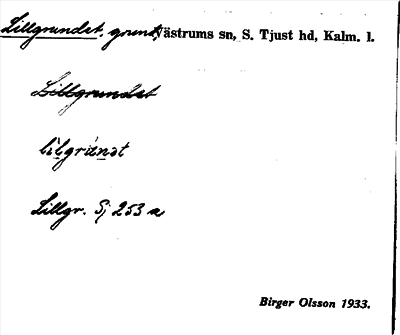 Lillgrundet, grund, Västrums sn, S. Tjust hd, Kalm. l.
Lillgrundet
Lillgr. Sj 253 a
Birger Olsson 1933.